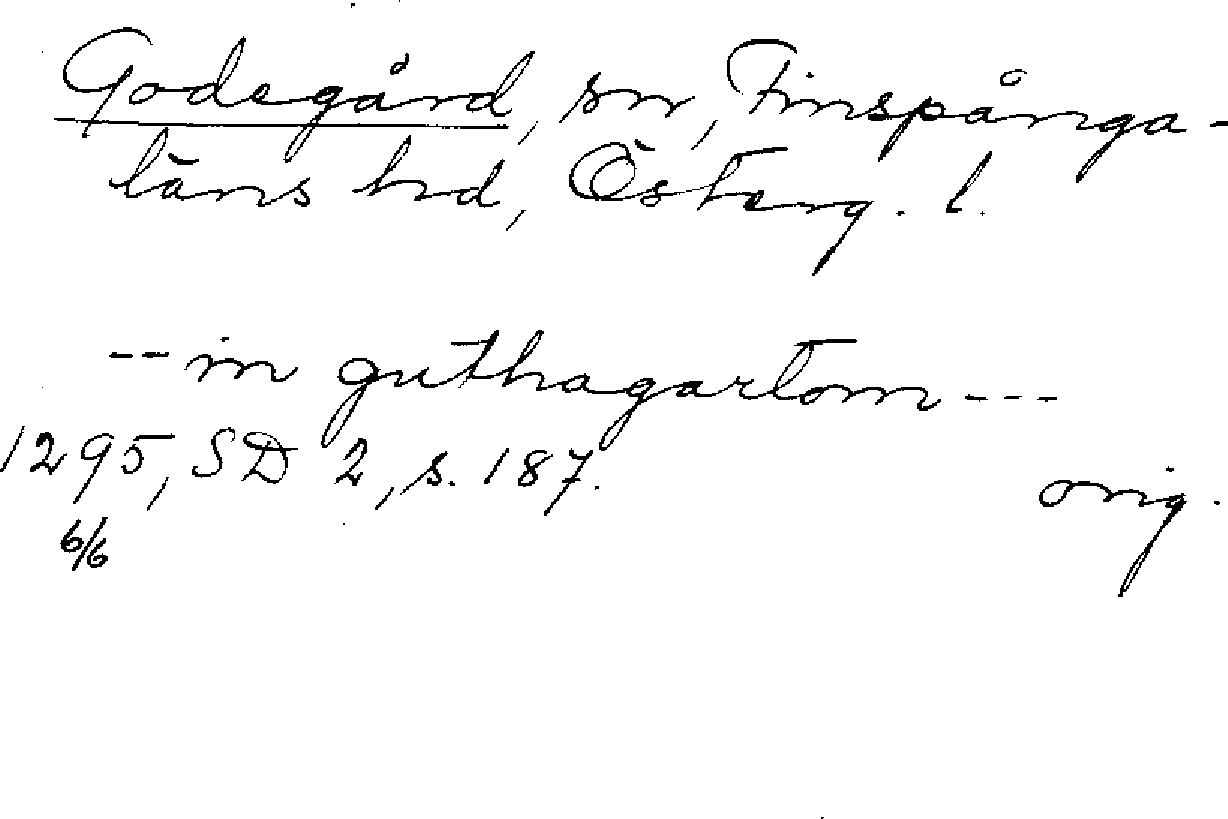 Godegård, sn, Finspånga-
läns hd, Österg. l.
-- in guthagartom ---
1295, SD 2, s. 187.
orig.
6/6